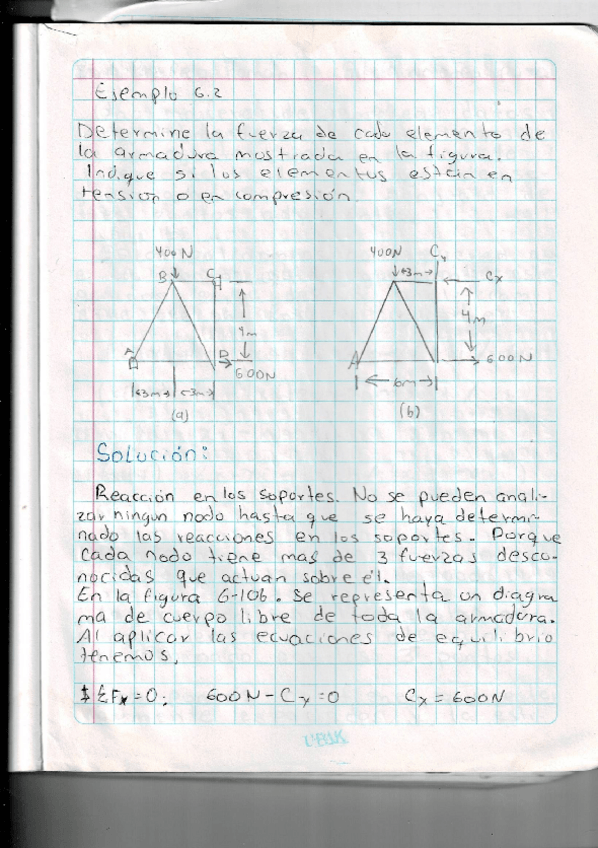 Ejemplo 6.2
Determine la fuerza de cada elemento de
la armadura mostrada en la figura.
Indique si los elementos estan en
tension o en compresión.
400N
B
C
4m
A
D
600N
3m
3m
(a)
400N
Cy
3m
Cx
4m
600N
A
6m
(b)
Solución:
Reacción en los soportes. No se pueden anali-
zar ningun nodo hasta que se haya determi-
nado las reacciones en los soportes. Porque
Cada nodo tiene mas de 3 fuerzas desco-
nocidas que actuan sobre él.
En la figura 6-10b. Se representa un diagra
ma de cuerpo libre de toda la armadura.
Al aplicar las ecuaciones de equilibrio
tenemos,
ΣFx=0; 600N-Cx=0 Cx=600N